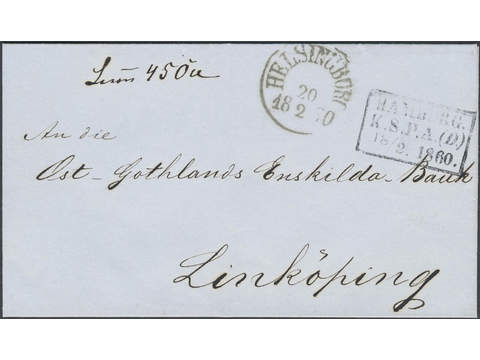 450
HELSINGBORG
20
18 2 70
HAMBURG.
K.S.P.A.(D.)
18/2. 1860.
An die
Öst-Gothlands Enskilda-Bank
Linköping